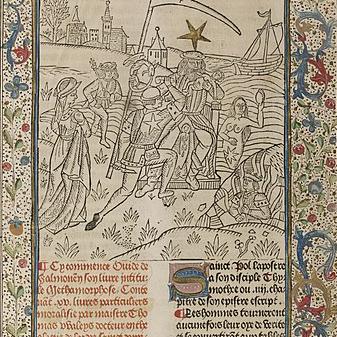 Cy commence Ouide de
Salmonen son liure intitu
le Methamorphose. Conte
nant .xv. liures particuliers
moralisie par maistre Tho
mas waleys docteur en theo
Sainct Pol lapostre
a son disciple Thy
mothee ou .iiij. cha
pitre de son epistre escript.
Les hommes tourneront
aucunefois leur oye de verite